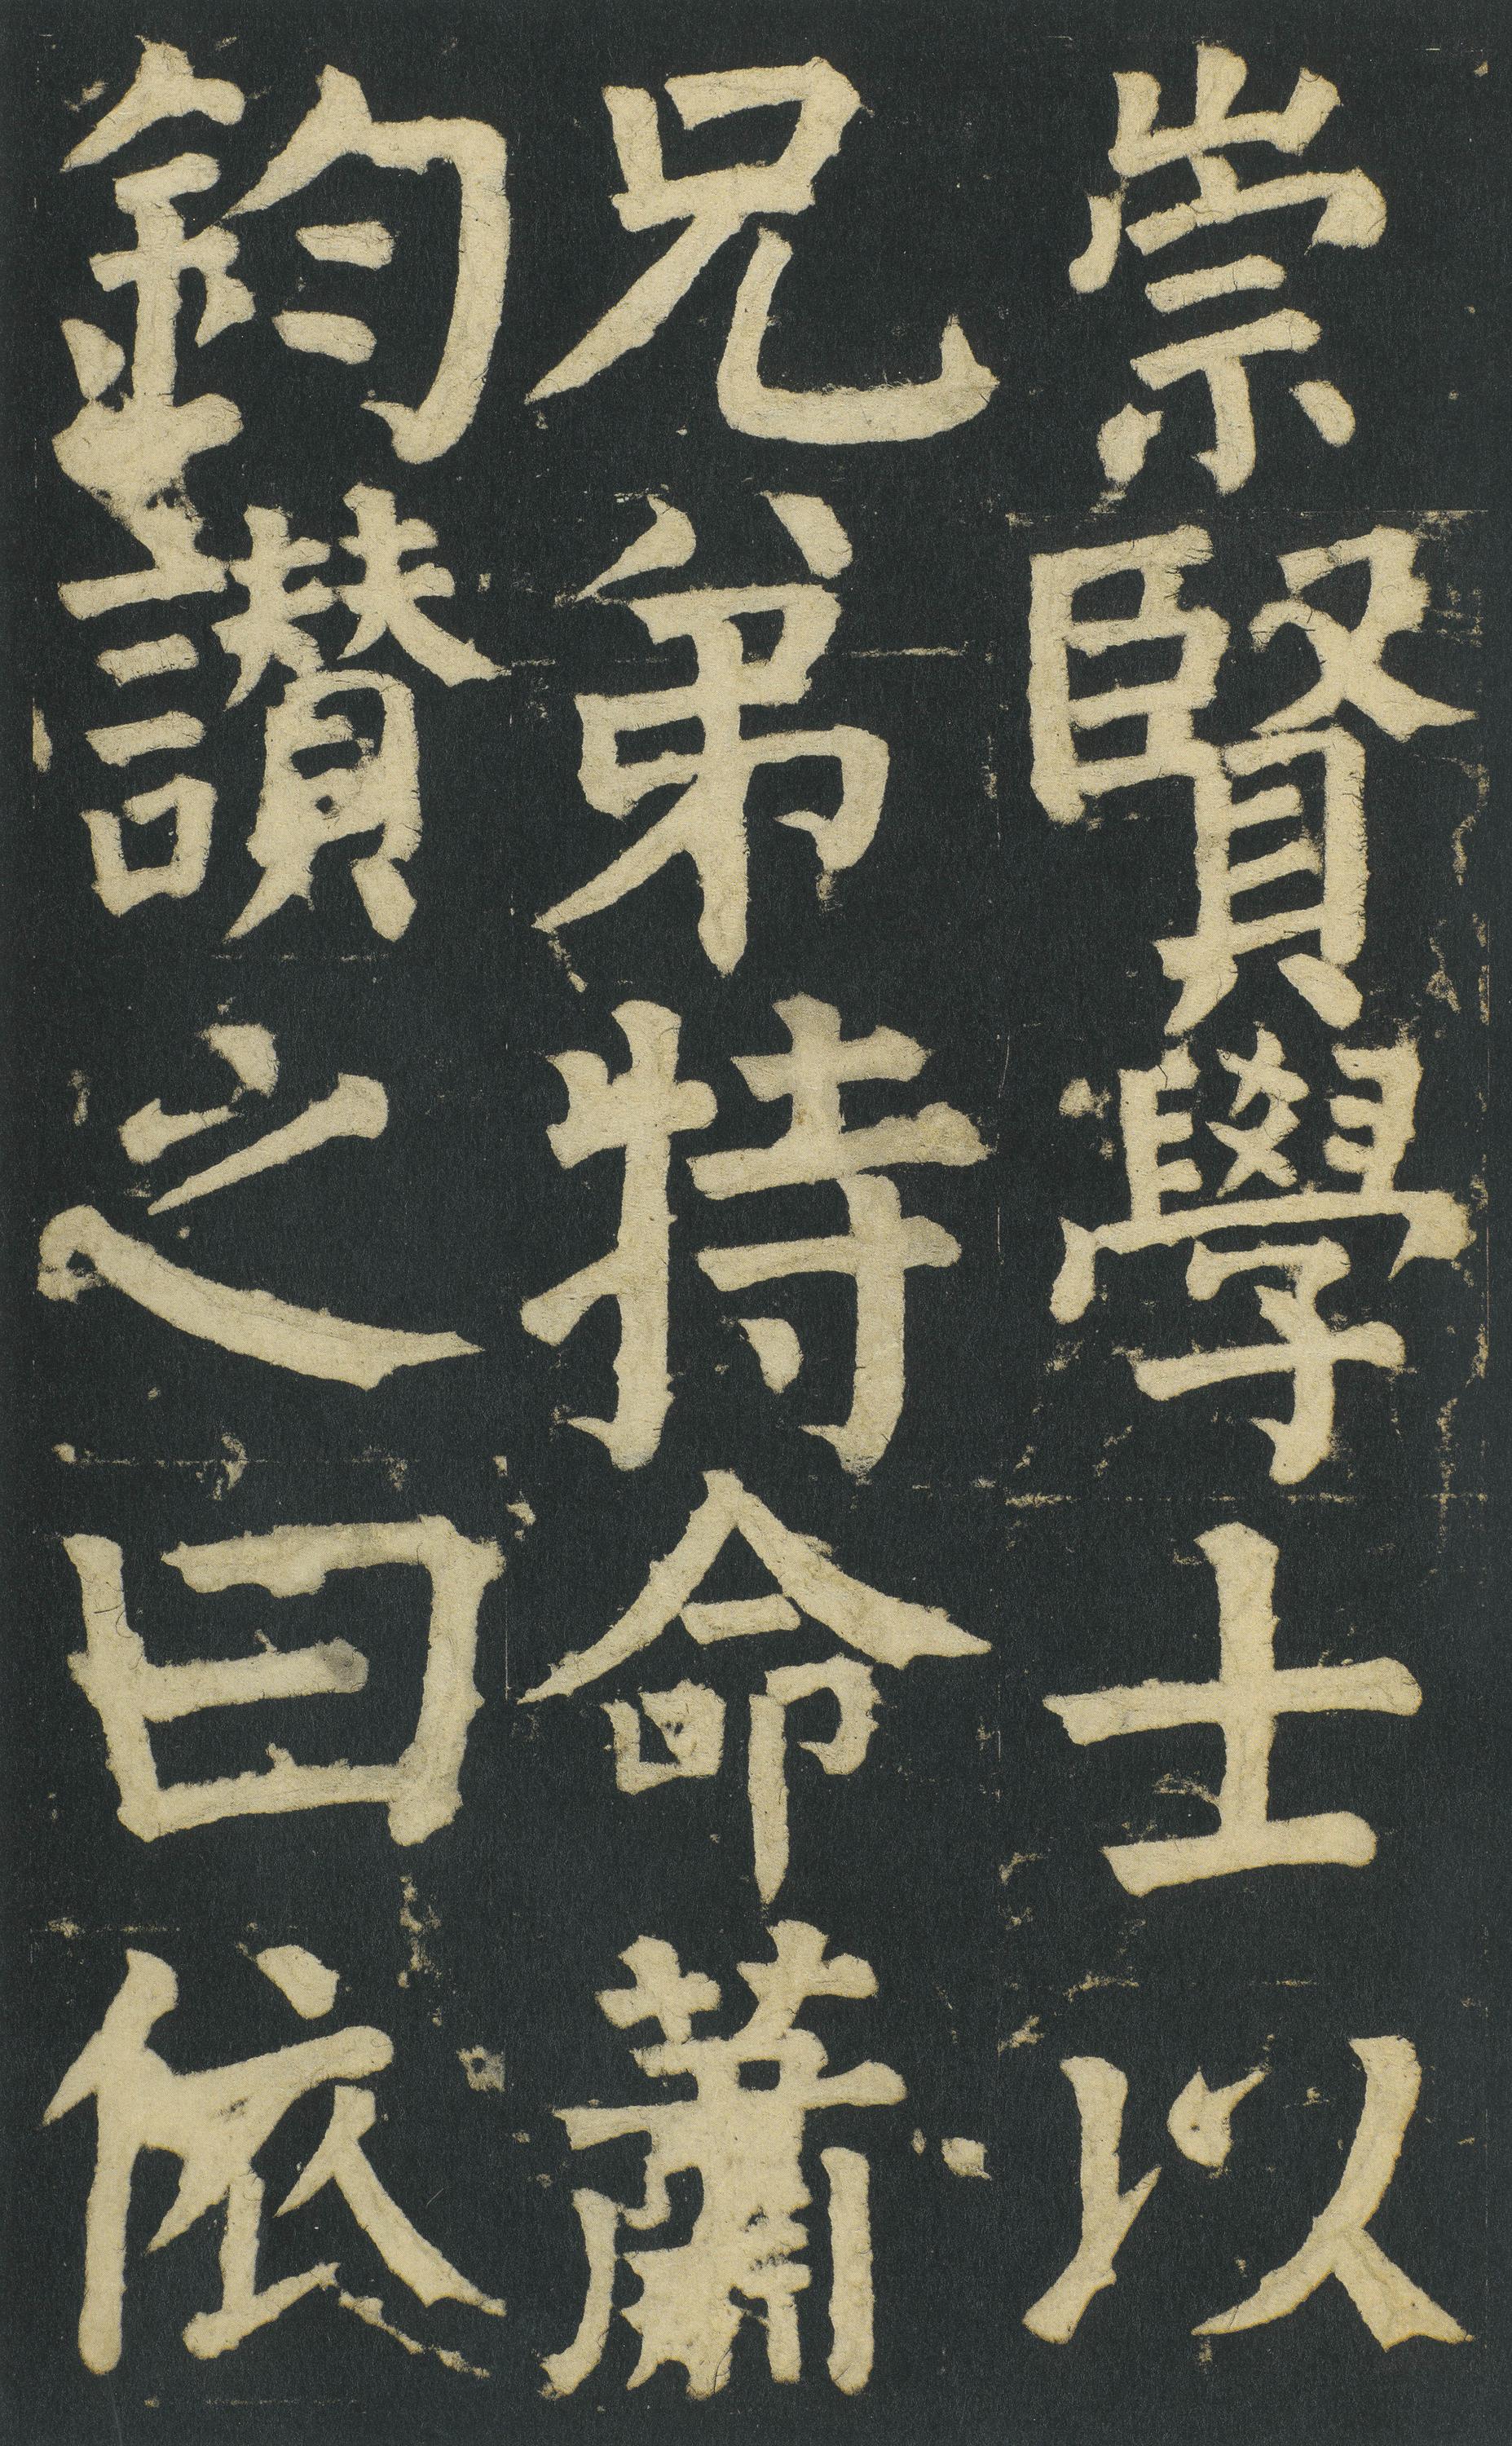 崇賢學士以
兄弟特命蕭
鈞讚之曰依